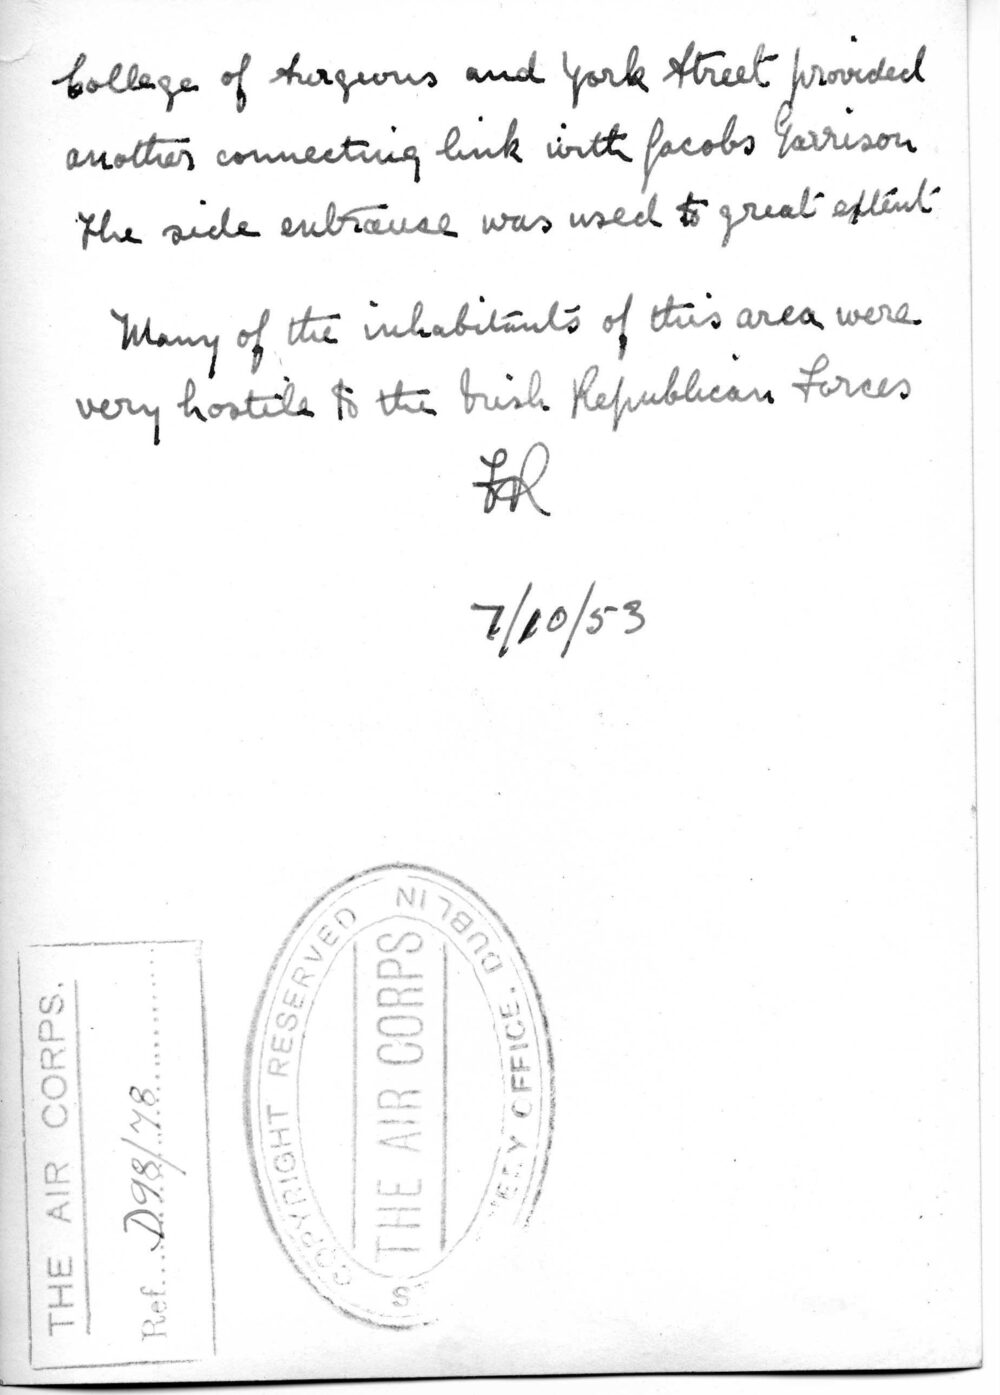 College of Surgeons and York Street provided
another connecting link with Jacobs Garrison
The side entrance was used to great extent
Many of the inhabitants of this area were
very hostile to the Irish Republican Forces
FR
7/10/53
THE AIR CORPS.
Ref....D98/78
COPYRIGHT RESERVED
THE AIR CORPS
OFFICE. DUBLIN